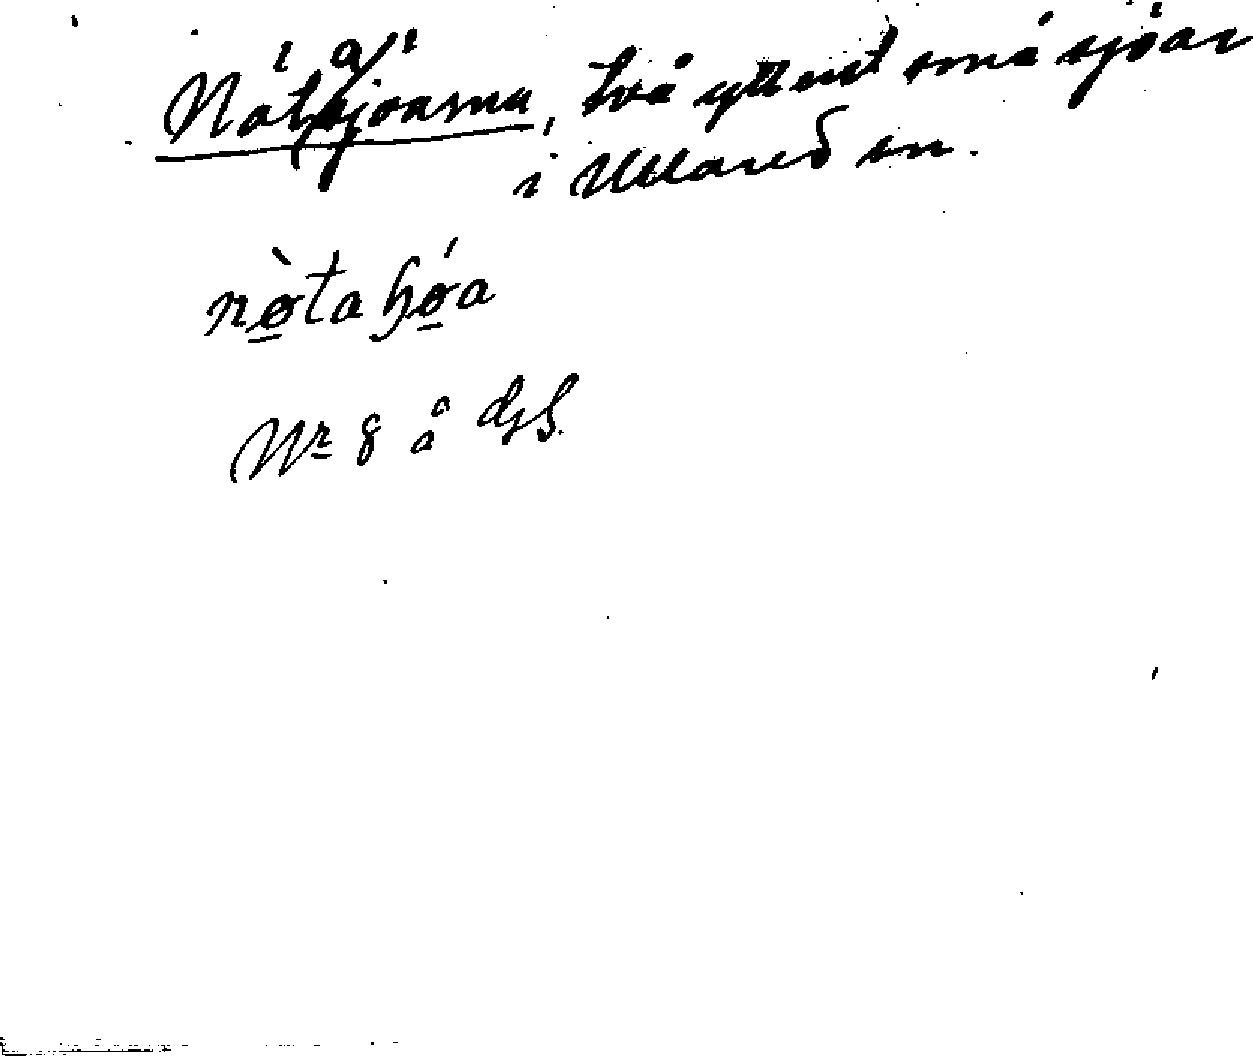 Nötasjöarna, två ytterst små sjöar
i Ullared sn.
nø̀ta ɧǿa
Nr 8 å